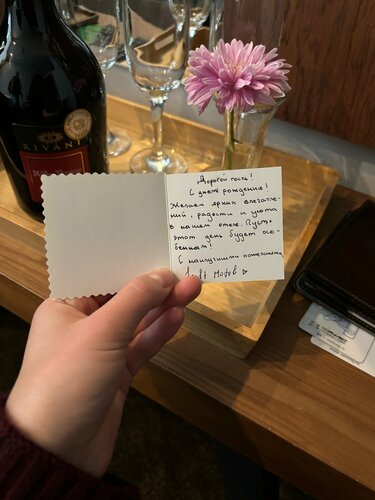 RIVANI
Дорогой гость!
С днём рождения!
Желаем ярких впечатле-
ний, радости и уюта
в нашем отеле. Пусть
этот день будет осо-
бенным!
С наилучшими пожеланиями,
Loft